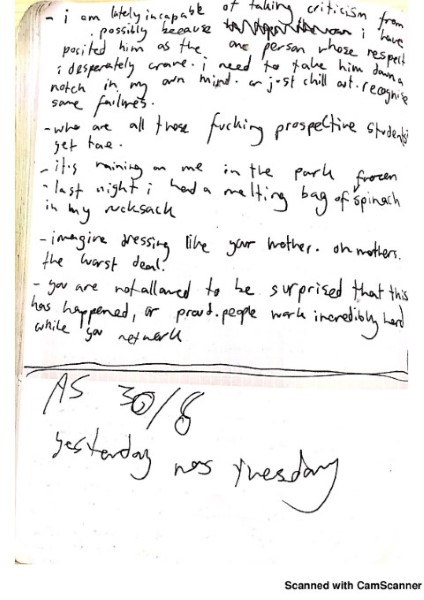 - i am lately incapable of taking criticism from
possibly because i have
posited him as the one person whose respect
i desperately crave. i need to take him down a
notch in my own mind. or just chill out. recognise
some failures.
- who are all those fucking prospective students
get tae.
- it's raining on me in the park
- last night i had a melting bag of frozen spinach
in my rucksack
- imagine dressing like your mother. oh mothers.
the worst deal.
- you are not allowed to be surprised that this
has happened, or proud. people work incredibly hard
while you network
AS 30/8
yesterday was tuesday
Scanned with CamScanner